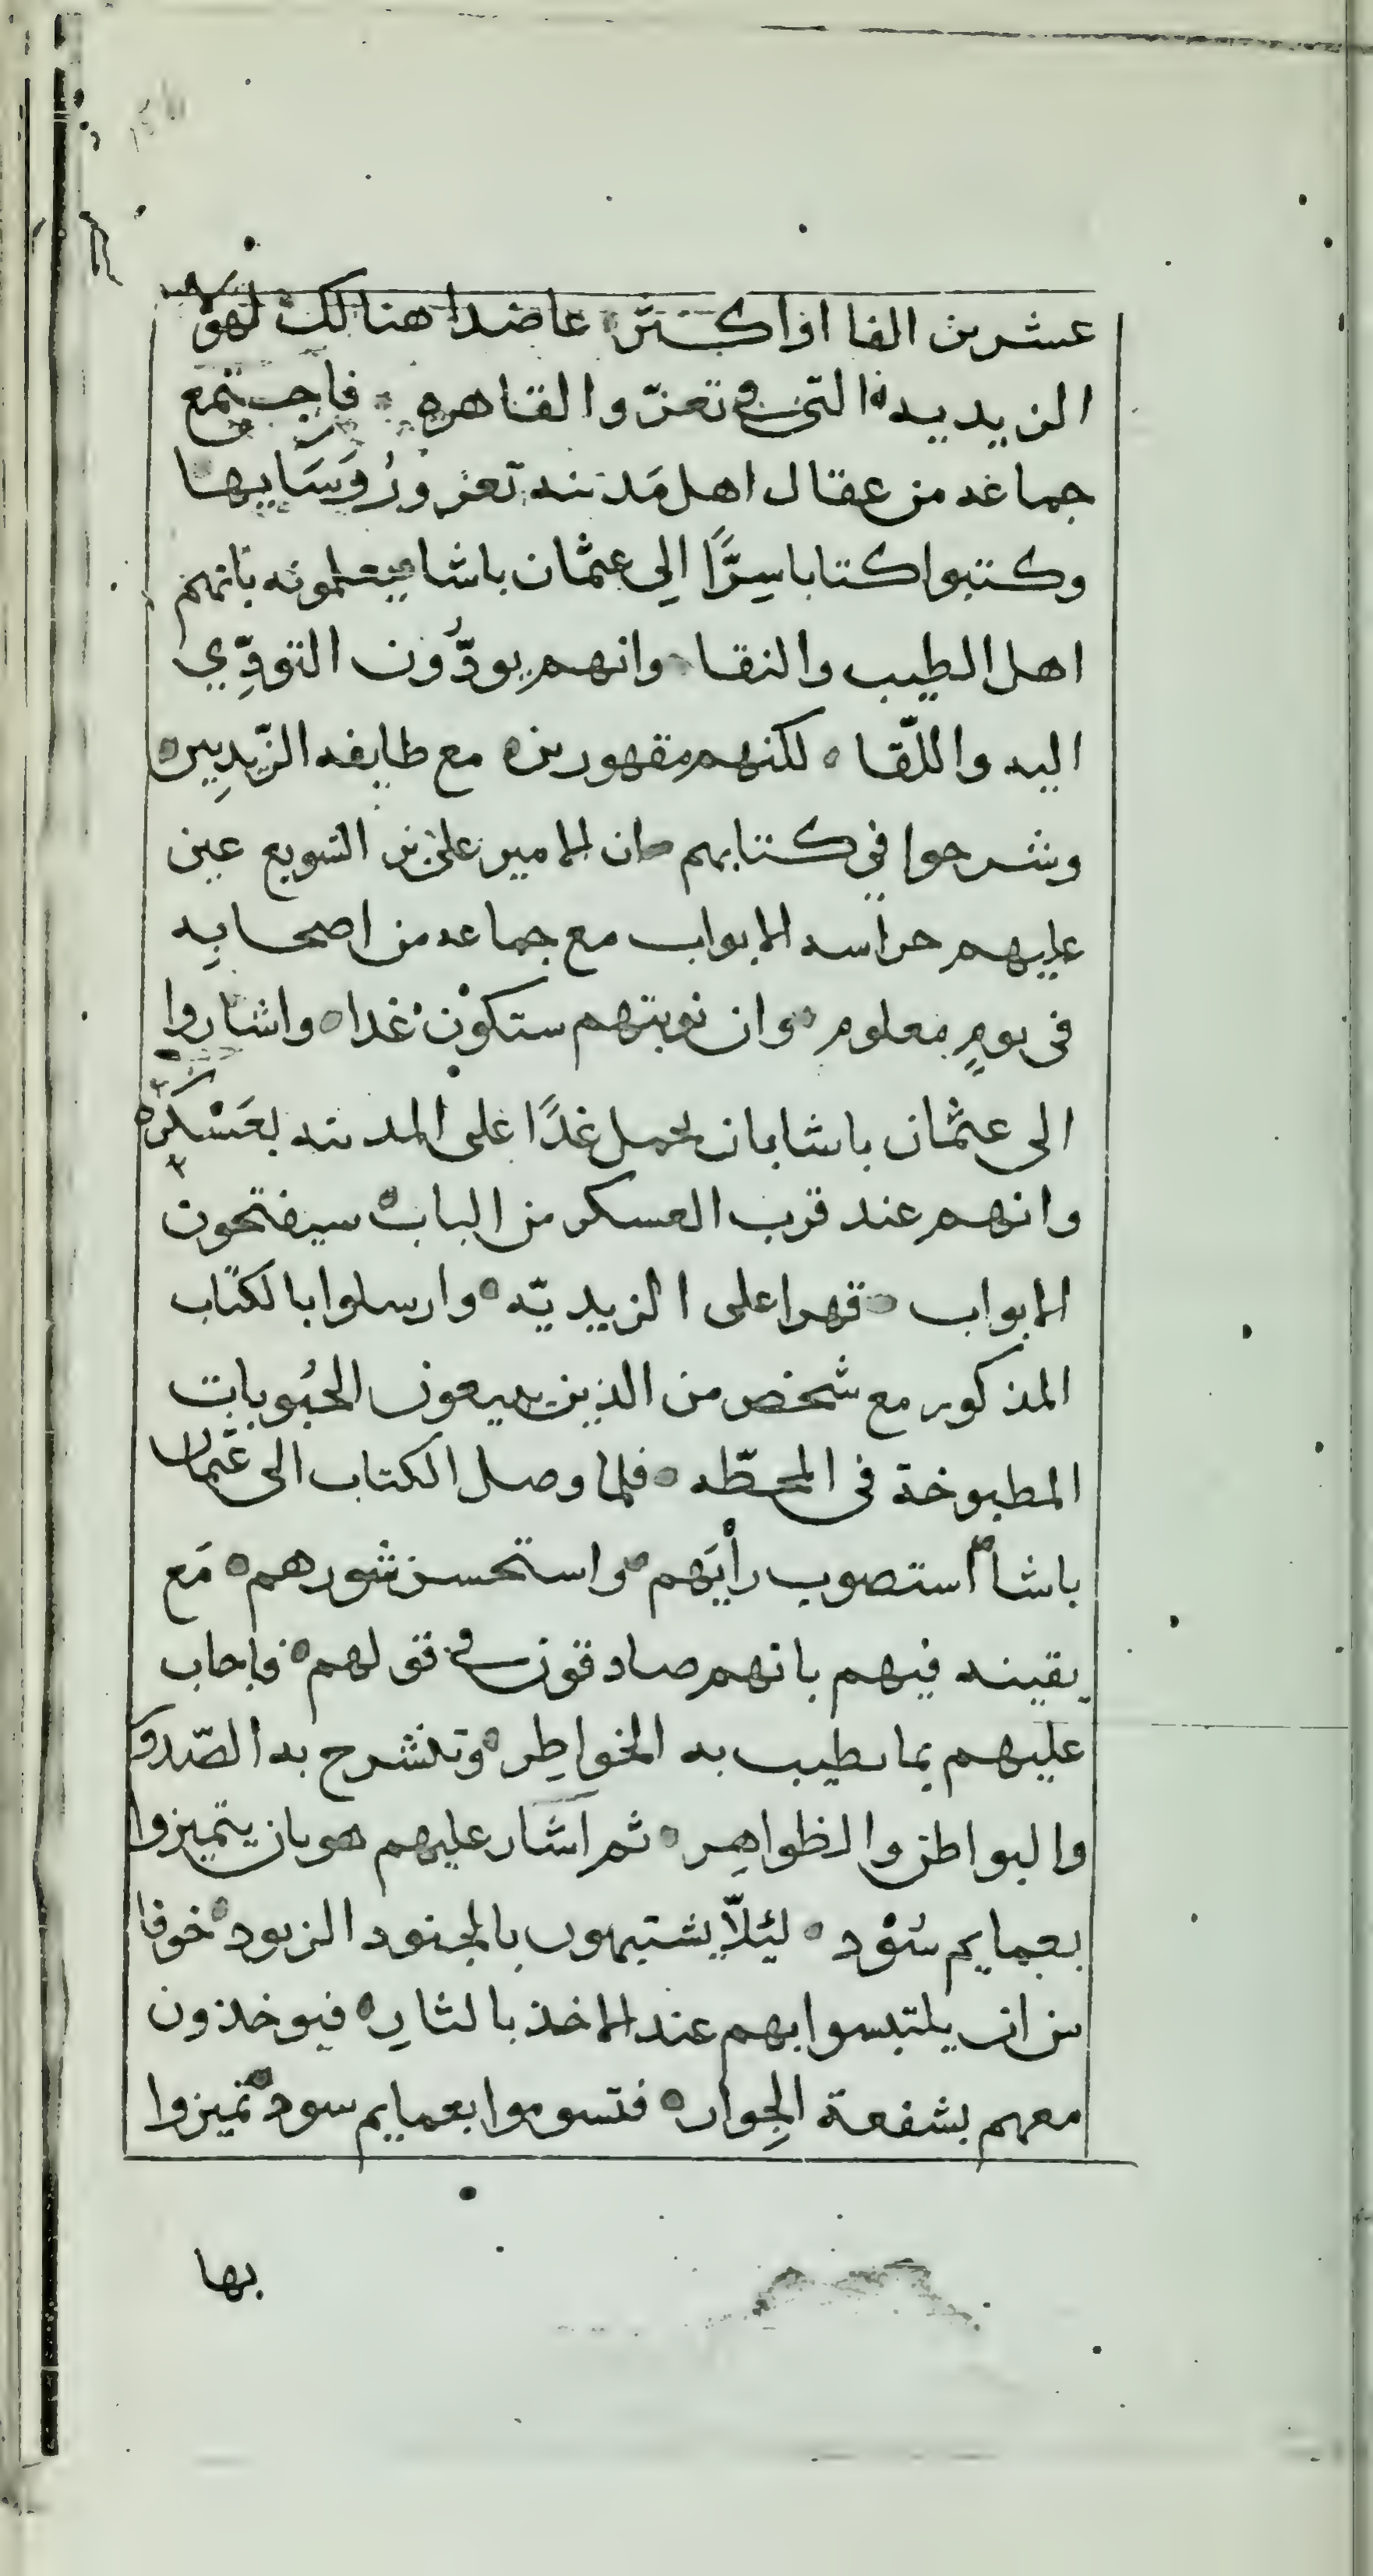 عشرين الفا او اكثر عاضدا هنالك لهولاء
الزيديه التي في تعز والقاهره فاجتمع
جماعه من عقال اهل مدينه تعز ورُوَسَايها
وكتبوا كتابا سِرًّا الى عثمان باشا يعلمونه بانهم
اهل الطيب والنقا وانهم يودُّون التودِّي
اليه واللّقا لكنهم مقهورين مع طايفه الزّيدِيين
وشرحوا في كتابهم ان الامير علي بن الشويع عين
عليهم حراسه الابواب مع جماعه من اصحابِه
في يومٍ معلوم وان نوبتهم ستكوْن غدا واشاروا
الى عثمان باشا بان يحمل غدًا على المدينه بعَسْكَره
وانهم عند قرب العسكر من الباب سيفتحون
الابواب قهرا على الزيديّه وارسلوا بالكتاب
المذكور مع شخص من الذين يبيعون الحبُوبات
المطبوخة في المحطّه فلما وصل الكتاب الى عثمان
باشا استصوب رأيَهم واستحسن شورهم مَع
يقينه فيهم بانهم صادقون في قولهم فاجاب
عليهم بما يطيب به الخواطِر وتنشرح به الصّدور
والبواطن والظواهِر ثم اشار عليهم هو بان يتميزوا
بعمايم سُوْد لئلاّ يشتبهون بالجنود الزيود خوفا
من ان يلتبسوا بهم عند الاخذ بالثارِ فيوخذون
معهم بشفعة الجِوار فتسوموا بعمايم سود تميزوا
بها